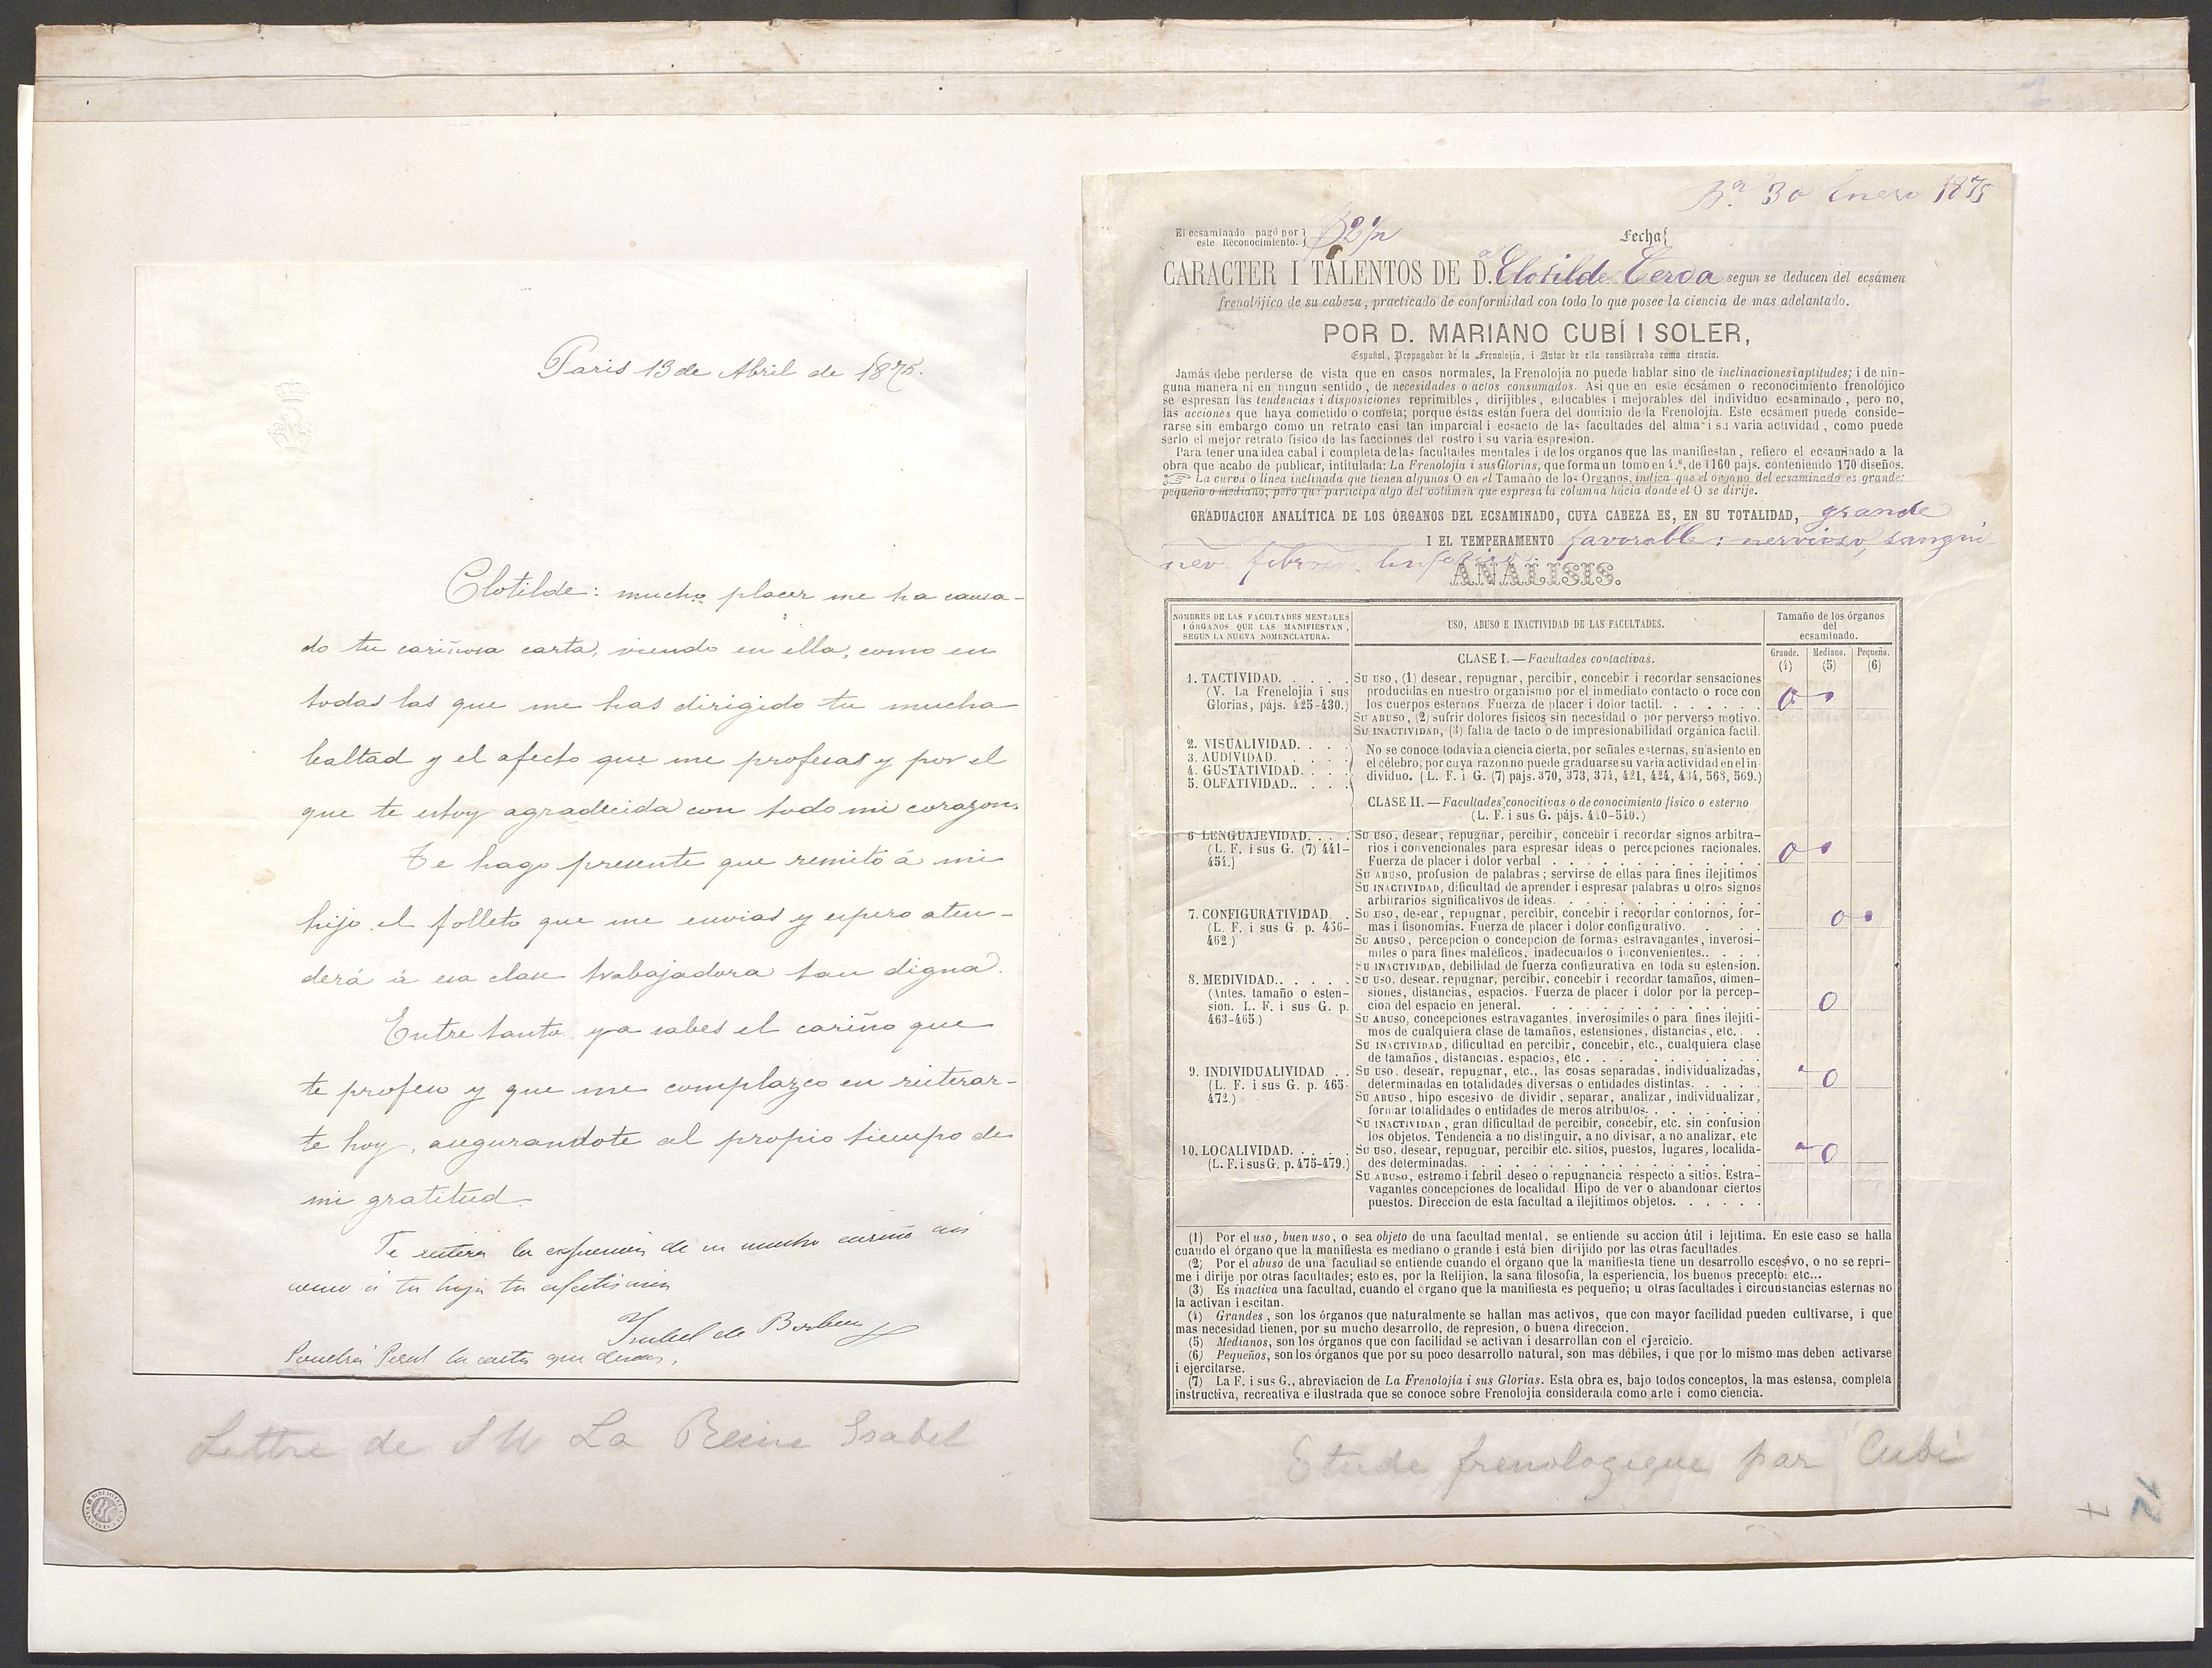 Paris 13 de Abril de 1875.
Clotilde: mucho placer me ha causa-
do tu cariñosa carta, viendo en ella, como en
todas las que me has dirigido tu mucha
lealtad y el afecto que me profesas y por el
que te estoy agradecida con todo mi corazon.
Te hago presente que remito á mi
hijo el folleto que me envias y espero aten-
derá á esa clase trabajadora tan digna.
Entre tanto ya sabes el cariño que
te profeso y que me complazco en reiterar-
te hoy, asegurandote al propio tiempo de
mi gratitud.
Te reitera la espresion de su mucho cariño asi
como á tu hija tu afectisima
Isabel de Borbon
la carta que deseas.
Lettre de S M La Reine Isabel
Bª 30 Enero 1875
El ecsaminado pagó por
este Reconocimiento. } $2 1/2
Fecha{
CARACTER I TALENTOS DE D.ª Clotilde Cerda segun se deducen del ecsámen
frenolójico de su cabeza, practicado de conformidad con todo lo que posee la ciencia de mas adelantado.
POR D. MARIANO CUBÍ I SOLER,
Español, Propagador de la Frenolojia, i Autor de ella considerada como ciencia.
Jamás debe perderse de vista que en casos normales, la Frenolojía no puede hablar sino de inclinaciones i aptitudes; i de nin-
guna manera ni en ningun sentido, de necesidades o actos consumados. Así que en este ecsámen o reconocimiento frenolójico
se espresan las tendencias i disposiciones reprimibles, dirijibles, educables i mejorables del individuo ecsaminado, pero no,
las acciones que haya cometido o cometa; porque éstas están fuera del dominio de la Frenolojía. Este ecsámen puede conside-
rarse sin embargo como un retrato casi tan imparcial i ecsacto de las facultades del alma i su varia actividad, como puede
serlo el mejor retrato fisico de las facciones del rostro i su varia espresion.
Para tener una idea cabal i completa de las facultades mentales i de los órganos que las manifiestan, refiero el ecsaminado a la
obra que acabo de publicar, intitulada: La Frenolojía i sus Glorias, que forma un tomo en 4.º, de 1160 pajs. conteniendo 170 diseños.
☞ La curva o línea inclinada que tienen algunos O en el Tamaño de los Organos, indica que el órgano del ecsaminado es grande;
pequeño o mediano; pero que participa algo del volúmen que espresa la columna hácia donde el O se dirije.
GRADUACION ANALÍTICA DE LOS ÓRGANOS DEL ECSAMINADO, CUYA CABEZA ES, EN SU TOTALIDAD, grande
I EL TEMPERAMENTO favorable: nervioso, sanguí
neo. fibroso. linfatico
ANÁLISIS.
NOMBRES DE LAS FACULTADES MENTALES
I ÓRGANOS QUE LAS MANIFIESTAN,
SEGUN LA NUEVA NOMENCLATURA.
USO, ABUSO E INACTIVIDAD DE LAS FACULTADES.
Tamaño de los órganos
del
ecsaminado.
Grande. Mediano. Pequeño.
(4) (5) (6)
CLASE I.—Facultades contactivas.
1. TACTIVIDAD. . . . .
(V. La Frenelojía i sus
Glorias, pájs. 425-430.)
Su uso, (1) desear, repugnar, percibir, concebir i recordar sensaciones
producidas en nuestro organismo por el inmediato contacto o roce con
los cuerpos esternos. Fuerza de placer i dolor tactil. . . . . . .
Su abuso, (2) sufrir dolores fisicos sin necesidad o por perverso motivo.
Su inactividad, (3) falta de tacto o de impresionabilidad orgánica factil.
2. VISUALIVIDAD. . . .
3. AUDIVIDAD. . . . .
4. GUSTATIVIDAD. . . .
5. OLFATIVIDAD.. . . .
No se conoce todavía a ciencia cierta, por señales esternas, su asiento en
el célebro, por cuya razon no puede graduarse su varia actividad en el in-
dividuo. (L. F. i G. (7) pajs. 370, 373, 374, 421, 424, 434, 568, 569.)
CLASE II.—Facultades conocitivas o de conocimiento físico o esterno
(L. F. i sus G. pájs. 440-540.)
6 LENGUAJEVIDAD. . . .
(L. F. i sus G. (7) 441-
454.)
Su uso, desear, repugnar, percibir, concebir i recordar signos arbitra-
rios i convencionales para espresar ideas o percepciones racionales.
Fuerza de placer i dolor verbal . . . . . . . . . . . .
Su abuso, profusion de palabras; servirse de ellas para fines ilejítimos
Su inactividad, dificultad de aprender i espresar palabras u otros signos
arbitrarios significativos de ideas. . . . . . . . . . . .
7. CONFIGURATIVIDAD. .
(L. F. i sus G. p. 456-
462.)
Su uso, desear, repugnar, percibir, concebir i recordar contornos, for-
mas i fisonomías. Fuerza de placer i dolor configurativo. . . . .
Su abuso, percepcion o concepcion de formas estravagantes, inverosí-
miles o para fines maléficos, inadecuados o inconvenientes.. . . .
Su inactividad, debilidad de fuerza configurativa en toda su estension.
8. MEDIVIDAD.. . . . .
(Antes, tamaño o esten-
sion. L. F. i sus G. p.
463-465.)
Su uso, desear, repugnar, percibir, concebir i recordar tamaños, dimen-
siones, distancias, espacios. Fuerza de placer i dolor por la percep-
cion del espacio en jeneral. . . . . . . . . . . . . .
Su abuso, concepciones estravagantes, inverosímiles o para fines ilejíti-
mos de cualquiera clase de tamaños, estensiones, distancias, etc.. .
Su inactividad, dificultad en percibir, concebir, etc., cualquiera clase
de tamaños, distancias, espacios, etc . . . . . . . . . .
9. INDIVIDUALIVIDAD . .
(L. F. i sus G. p. 465-
472.)
Su uso, desear, repugnar, etc., las cosas separadas, individualizadas,
determinadas en totalidades diversas o entidades distintas. . . . .
Su abuso, hipo escesivo de dividir, separar, analizar, individualizar,
formar totalidades o entidades de meros atributos. . . . . . . .
Su inactividad, gran dificultad de percibir, concebir, etc. sin confusion
los objetos. Tendencia a no distinguir, a no divisar, a no analizar, etc
10. LOCALIVIDAD. . . . .
(L. F. i sus G. p. 475-479.)
Su uso, desear, repugnar, percibir etc. sitios, puestos, lugares, localida-
des determinadas. . . . . . . . . . . . . . . . .
Su abuso, estremo i febril deseo o repugnancia respecto a sitios. Estra-
vagantes concepciones de localidad. Hipo de ver o abandonar ciertos
puestos. Direccion de esta facultad a ilejítimos objetos. . . . . .
(1) Por el uso, buen uso, o sea objeto de una facultad mental, se entiende su accion útil i lejítima. En este caso se halla
cuando el órgano que la manifiesta es mediano o grande i está bien dirijido por las otras facultades.
(2) Por el abuso de una facultad se entiende cuando el órgano que la manifiesta tiene un desarrollo escesivo, o no se repri-
me i dirije por otras facultades; esto es, por la Relijion, la sana filosofía, la esperiencia, los buenos preceptos etc...
(3) Es inactiva una facultad, cuando el órgano que la manifiesta es pequeño; u otras facultades i circunstancias esternas no
la activan i escitan.
(4) Grandes, son los órganos que naturalmente se hallan mas activos, que con mayor facilidad pueden cultivarse, i que
mas necesidad tienen, por su mucho desarrollo, de represion, o buena direccion.
(5) Medianos, son los órganos que con facilidad se activan i desarrollan con el ejercicio.
(6) Pequeños, son los órganos que por su poco desarrollo natural, son mas débiles, i que por lo mismo mas deben activarse
i ejercitarse.
(7) La F. i sus G., abreviacion de La Frenolojía i sus Glorias. Esta obra es, bajo todos conceptos, la mas estensa, completa
instructiva, recreativa e ilustrada que se conoce sobre Frenolojía considerada como arte i como ciencia.
Etude frenologique par Cubí